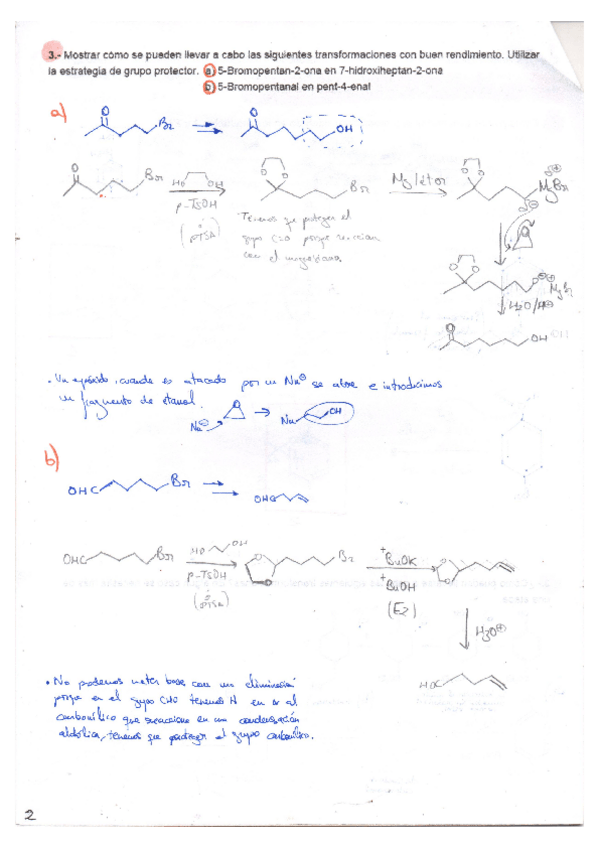 3.- Mostrar cómo se pueden llevar a cabo las siguientes transformaciones con buen rendimiento. Utilizar
la estrategia de grupo protector. a) 5-Bromopentan-2-ona en 7-hidroxiheptan-2-ona
b) 5-Bromopentanal en pent-4-enal
a)
O Br O OH
O Br HO OH O O Br Mg/éter O O MgBr
p-TsOH
(ó PTSA)
Tenemos que proteger el
grupo C=O porque reacciona
con el magnesiano
O
O O O MgBr
H2O/H⊕
O OH
• Un epóxido, cuando es atacado por un Nu⊖ se abre e introducimos
un fragmento de etanol.
O Nu⊖ → Nu OH
b)
OHC Br OHC
OHC Br HO OH O O Br tBuOK O O
p-TsOH tBuOH
(ó PTSA) (E2)
H3O⊕
• No podemos meter base con un eliminación
porque en el grupo CHO tenemos H en α al
carbonílico que reaccione en una condensación
aldólica, tenemos que proteger el grupo carbonílico.
2